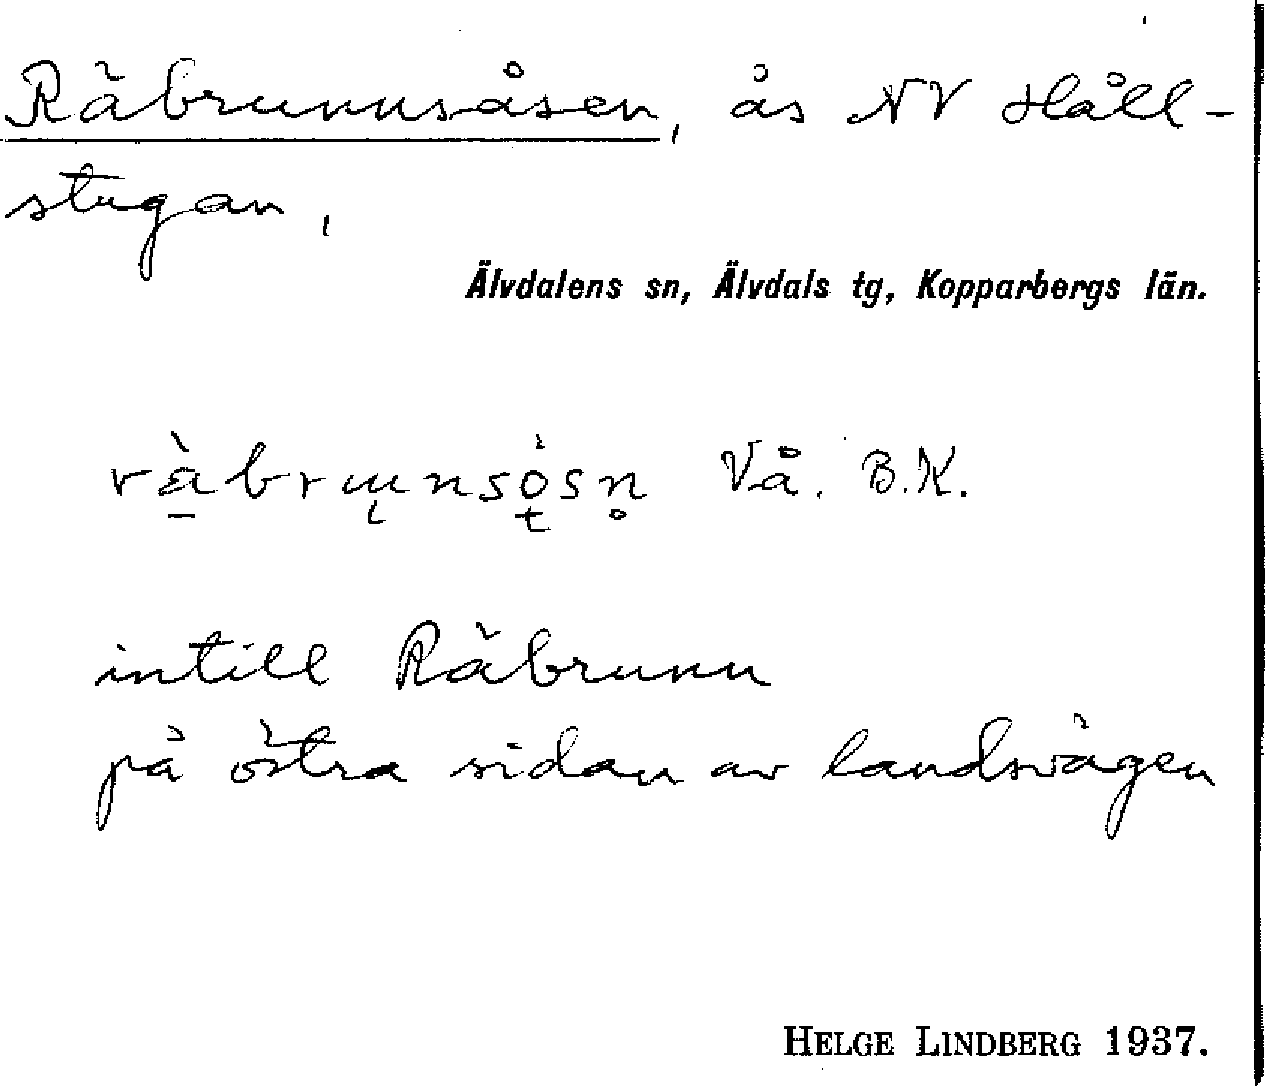 Räbrunnsåsen, ås NV Håll-
stugan,
Älvdalens sn, Älvdals tg, Kopparbergs län.
Vå. B.K.
intill Räbrunn
på östra sidan av landsvägen
HELGE LINDBERG 1937.